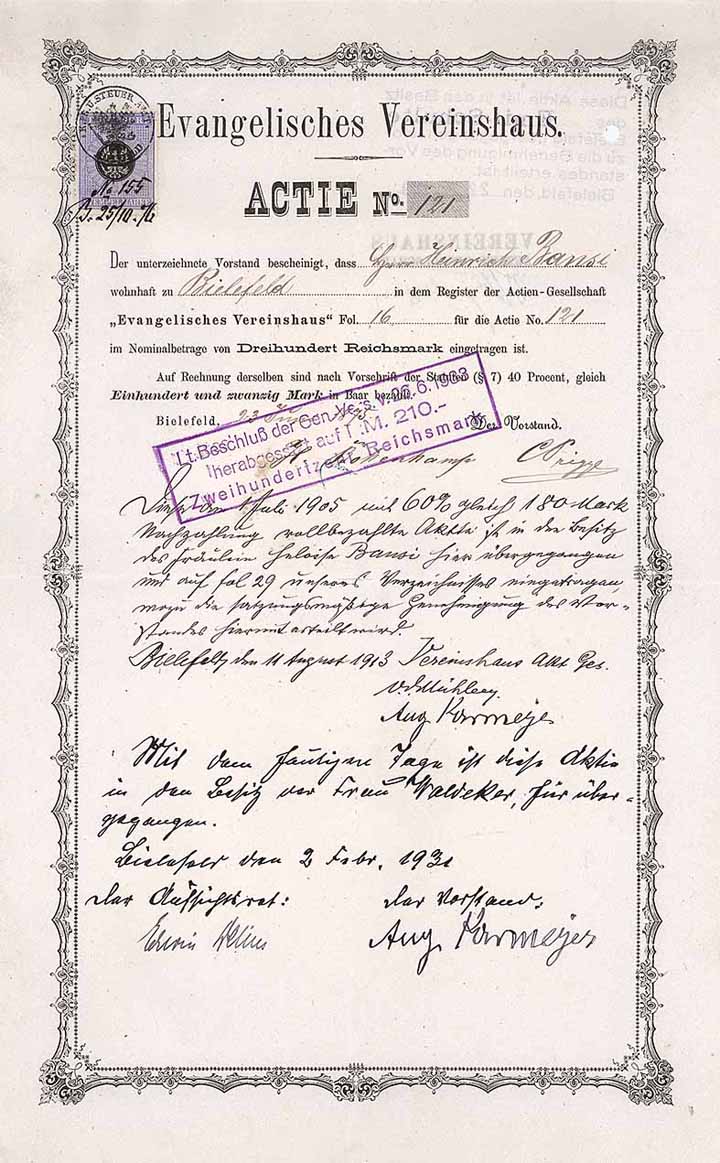 Evangelisches Vereinshaus.
No 155
25/10.
STEMPELMARKE
ACTIE No. 121
Der unterzeichnete Vorstand bescheinigt, dass Herr Heinrich Bansi
wohnhaft zu Bielefeld in dem Register der Actien-Gesellschaft
„Evangelisches Vereinshaus" Fol. 16 für die Actie No. 121
im Nominalbetrage von Dreihundert Reichsmark eingetragen ist.
Auf Rechnung derselben sind nach Vorschrift der Statuten (§ 7) 40 Procent, gleich
Einhundert und zwanzig Mark in Baar bezahlt.
Bielefeld, 23 Der Vorstand.
Lt. Beschluß der Gen. Vers. v. 26.6.1903
herabgesetzt auf M. 210.-
Zweihundertzehn Reichsmark
Diese den 1 Juli 1905 mit 60% gleich 180 Mark
Nachzahlung vollbezahlte Aktie ist in den Besitz
des Fräulein Heloise Bansi hier übergegangen
und auf fol 29 unseres Verzeichnisses eingetragen,
wozu die satzungsmäßige Genehmigung des Vor-
standes hiermit erteilt wird.
Bielefeld, den 11 August 1913 Vereinshaus Akt Ges.
Aug Karmeyer
Mit dem heutigen Tage ist diese Aktie
in den Besitz der Frau Waldeker, hier über-
gegangen.
Bielefeld den 2 Febr. 1931
der Aufsichtsrat: der Vorstand:
Edwin Aug Karmeyer
Diese Aktie ist in den Besitz
des
Bielefeld
zu die Genehmigung des Vor-
standes erteilt ist.
Bielefeld, den 2
VEREINSHAUS